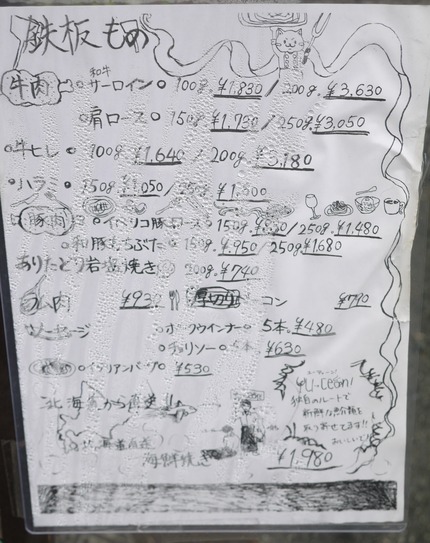 鉄板もの
牛肉 和牛 サーロイン 100g. ¥1,830 / 200g. ¥3,630
肩ロース 150g. ¥1,750 / 250g ¥3,050
牛ヒレ 100g ¥1,640 / 200g. ¥3,180
ハラミ 150g ¥1,050 / 250g ¥1,500
豚肉 イベリコ豚 ロース 150g. / 250g. ¥1,480
和豚もちぶた 150g. ¥950 / 250g ¥1,680
ありたどり岩塩焼き 200g. ¥740
肉 ¥930 厚切り コン ¥790
ソーセージ ポークウインナー 5本. ¥480
チョリソー 5本 ¥630
イタリアンバーグ ¥530
北海道から直送!!
海鮮焼き ¥1,980
独自のルートで
新鮮な魚介類を
取り寄せてます!!
おいしいぞ!